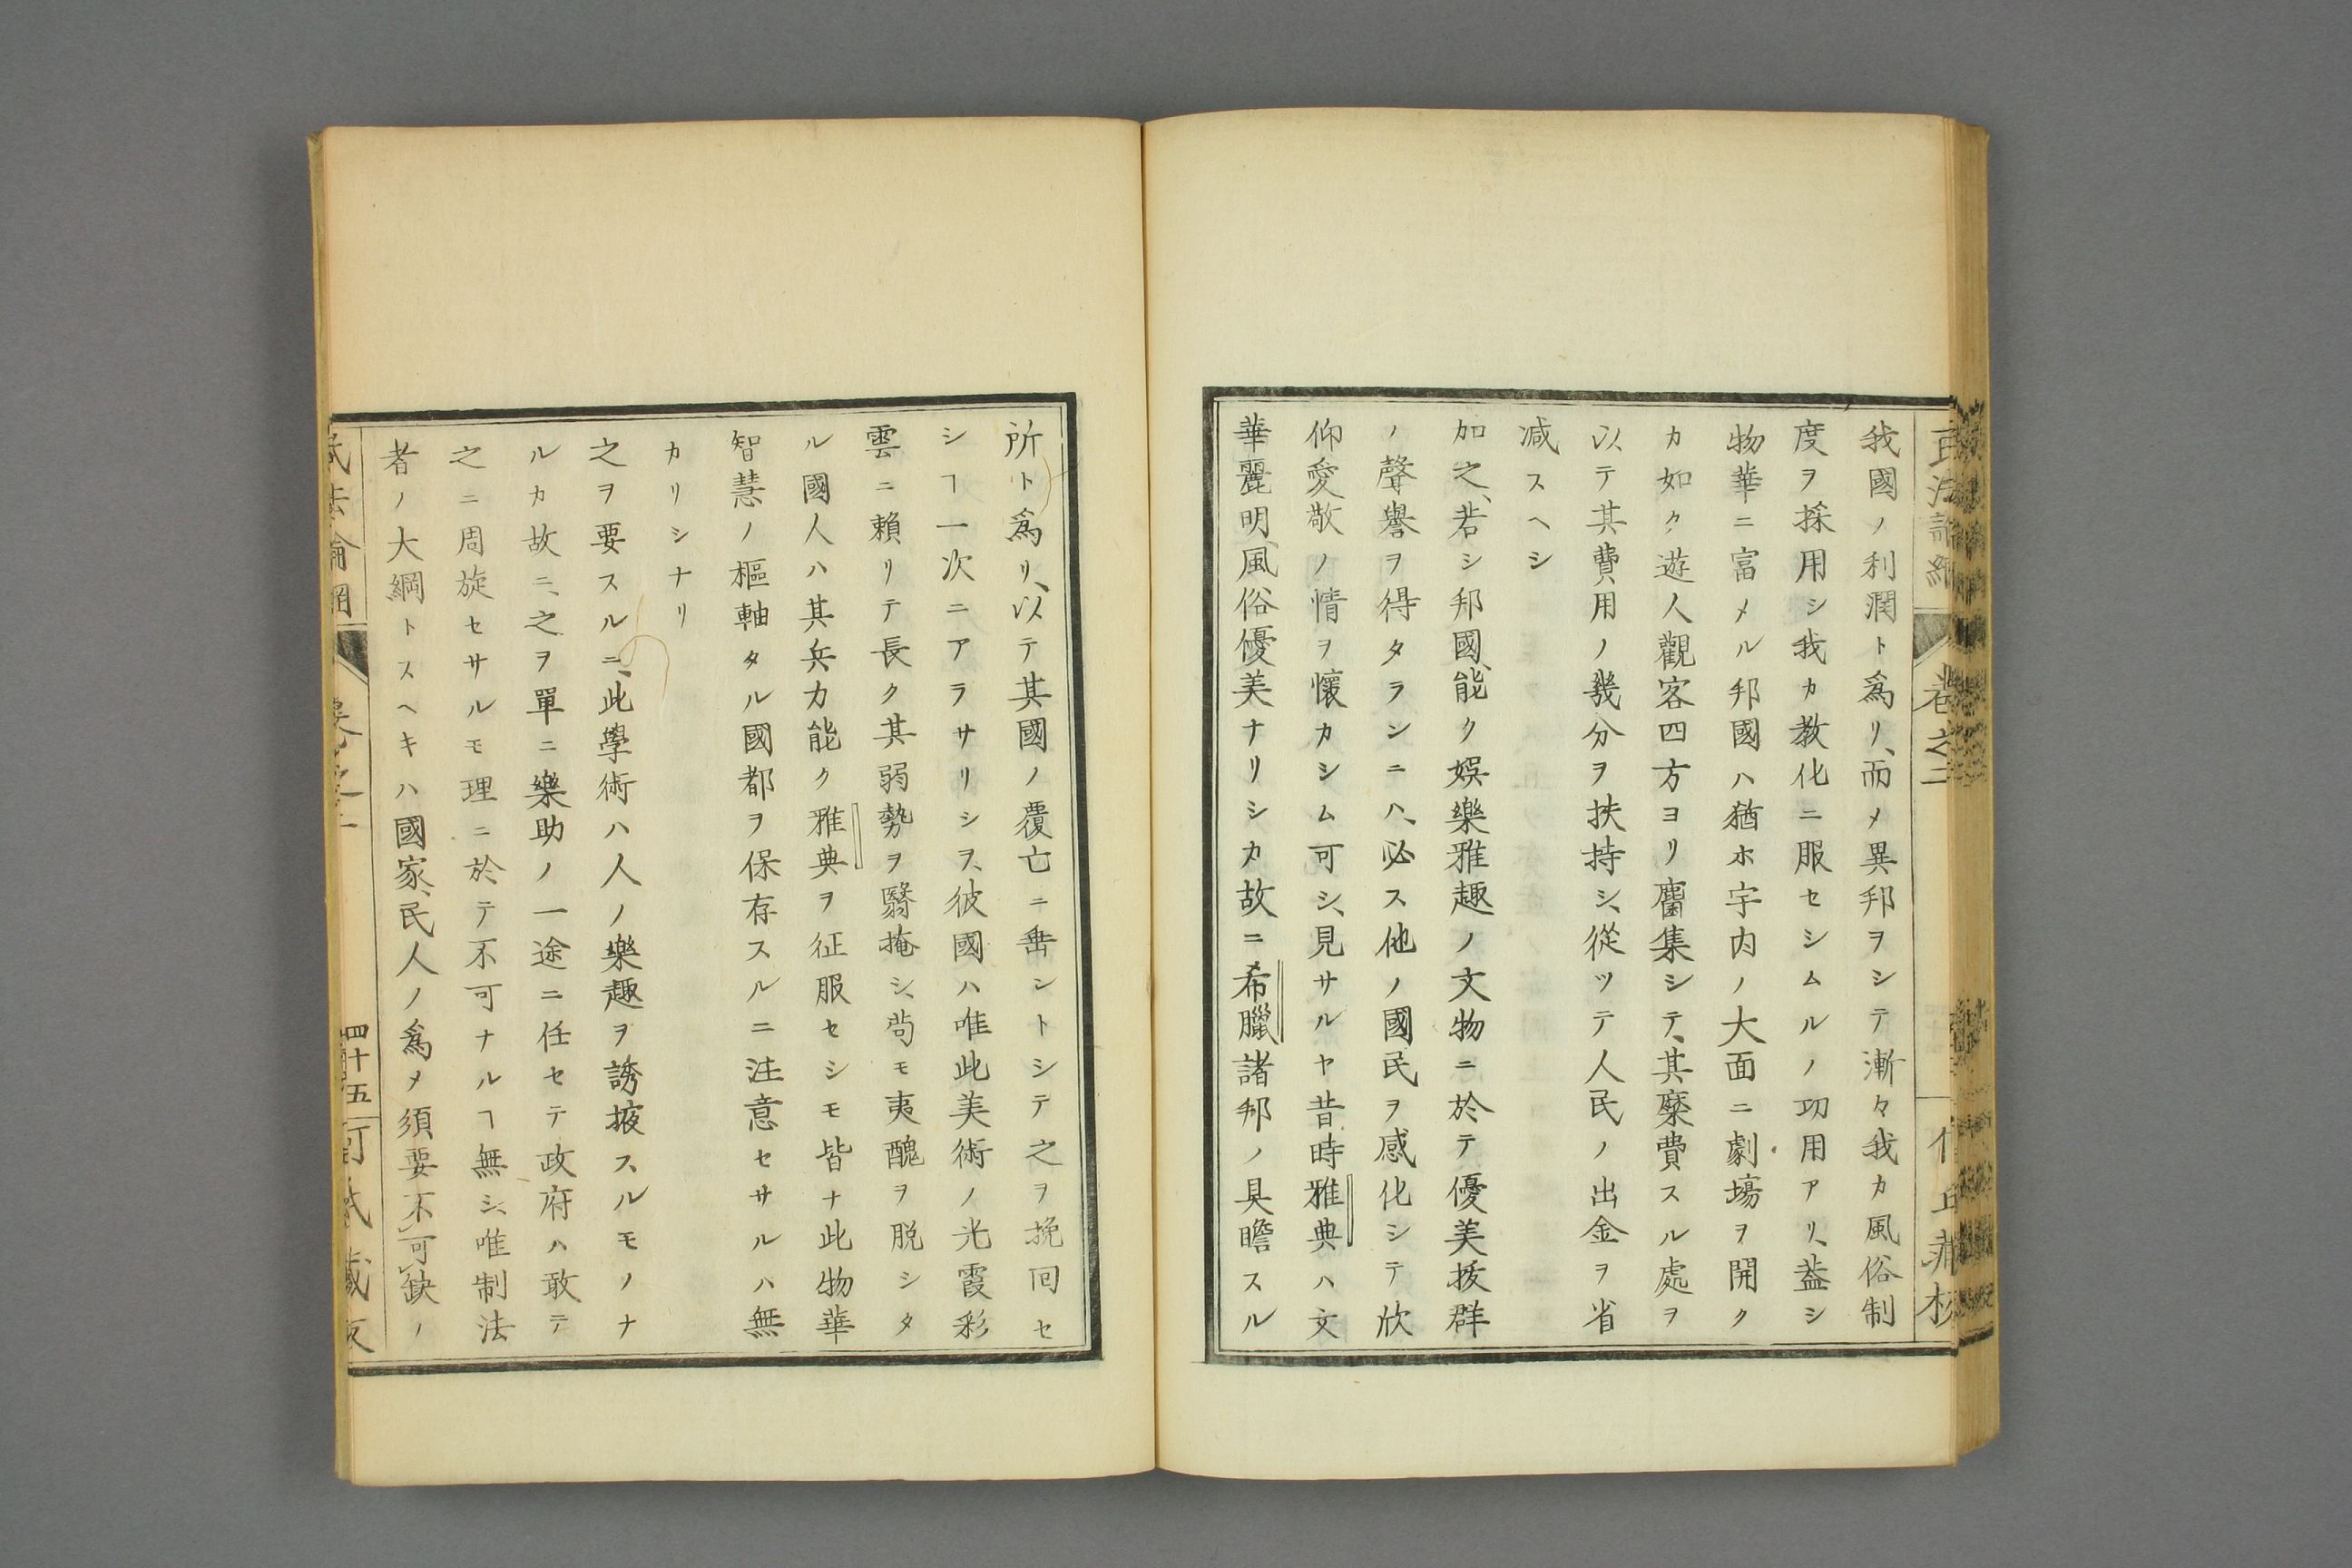 我國ノ利潤ト爲リ、而メ異邦ヲシテ漸々我カ風俗制
度ヲ採用シ我カ教化ニ服セシムルノ功用アリ、葢シ
物華ニ富メル邦國ハ猶ホ宇内ノ大面ニ劇塲ヲ開ク
カ如ク遊人觀客四方ヨリ麕集シテ、其糜費スル處ヲ
以テ其費用ノ幾分ヲ扶持シ、從ツテ人民ノ出金ヲ省
减スヘシ
加之、若シ邦國、能ク娯樂雅趣ノ文物ニ於テ優美拔群
ノ聲譽ヲ得タランニハ、必ス他ノ國民ヲ感化シテ欣
仰愛敬ノ情ヲ懷カシム可シ、見サルヤ昔時雅典ハ文
華麗明、風俗優美ナリシカ故ニ希臘諸邦ノ具瞻スル
所ト爲リ、以テ其國ノ覆亡ニ垂ントシテ之ヲ挽回セ
シヿ一次ニアラサリシヲ、彼國ハ唯此美術ノ光霞彩
雲ニ賴リテ長ク其弱勢ヲ翳掩シ、苟モ夷醜ヲ脱シタ
ル國人ハ其兵力能ク雅典ヲ征服セシモ皆ナ此物華
智慧ノ樞軸タル國都ヲ保存スルニ注意セサルハ無
カリシナリ
之ヲ要スルニ、此學術ハ人ノ樂趣ヲ誘掖スルモノナ
ルカ故ニ、之ヲ單ニ樂助ノ一途ニ任セテ政府ハ敢テ
之ニ周旋セサルモ理ニ於テ不可ナルヿ無シ、唯制法
者ノ大綱トスヘキハ國家、民人ノ爲メ須要不可缺ノ
四十五